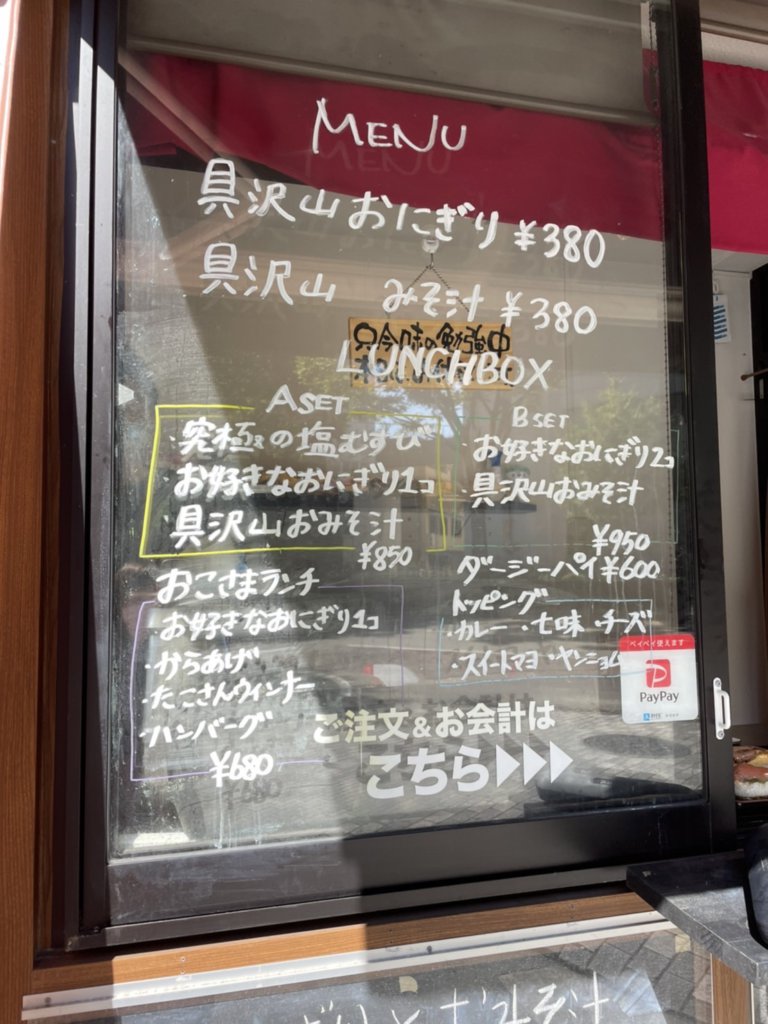 MENU
具沢山おにぎり ¥380
具沢山 みそ汁 ¥380
只今味の勉強中
LUNCHBOX
A SET
・究極の塩むすび
・お好きなおにぎり1コ
・具沢山おみそ汁
¥850
B SET
・お好きなおにぎり2コ
・具沢山おみそ汁
¥950
おこさまランチ
・お好きなおにぎり1コ
・からあげ
・たこさんウィンナー
・ハンバーグ
¥680
ダージーパイ¥600
トッピング
・カレー・七味・チーズ
・スイートマヨ・ヤンニョム
ペイペイ使えます
PayPay
ご注文&お会計は
こちら